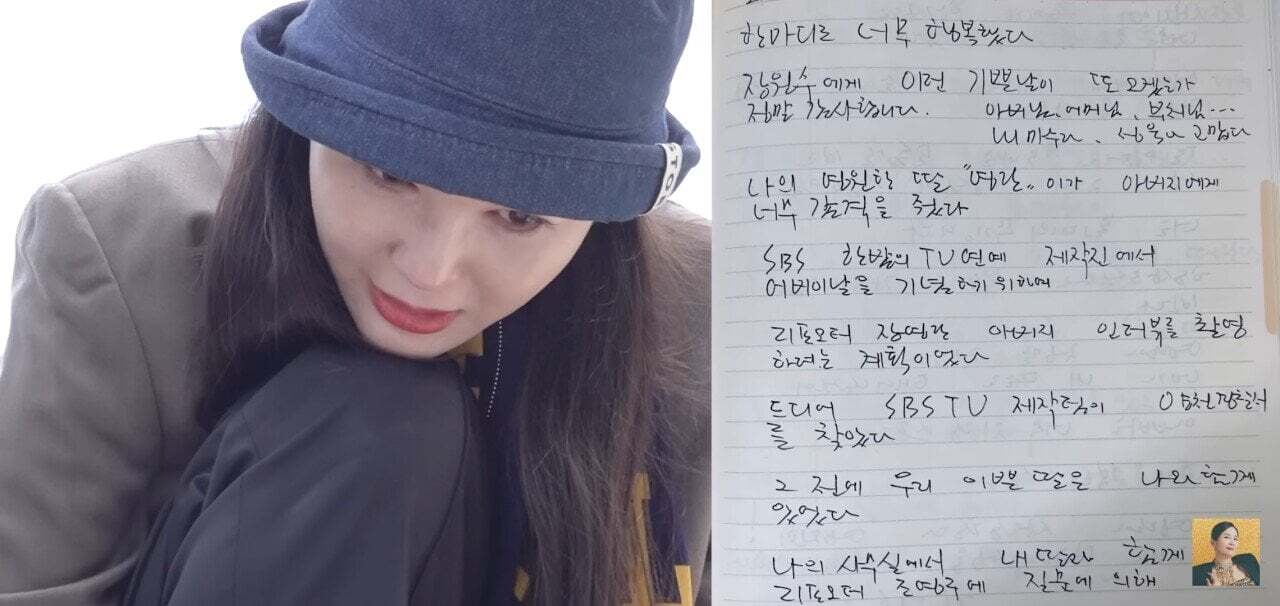 STO
한마디로 너무 행복했다
장원수에게 이런 기쁜날이 또 오겠는가
정말 감사합니다. 아버님, 어머님, 부처님...
미숙아, 성욱아 고맙다
나의 영원한 딸 "영란"이가 아버지에게
너무 감격을 주었다
SBS 한밤의TV연예 제작진에서
어버이날을 기념하기위하여
리포오터 장영란 아버지 인터뷰를 촬영
하려는 계획이었다
드디어 SBS TV 제작팀이
를 찾았다
그 전에 우리 이쁜 딸은 나와 함께
있었다
나의 사무실에서 내 딸과 함께
리포오터 조영구에 질문에 의해